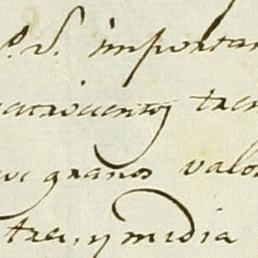 P. S. importan
atrocientos tren
granos valo
tres, y media